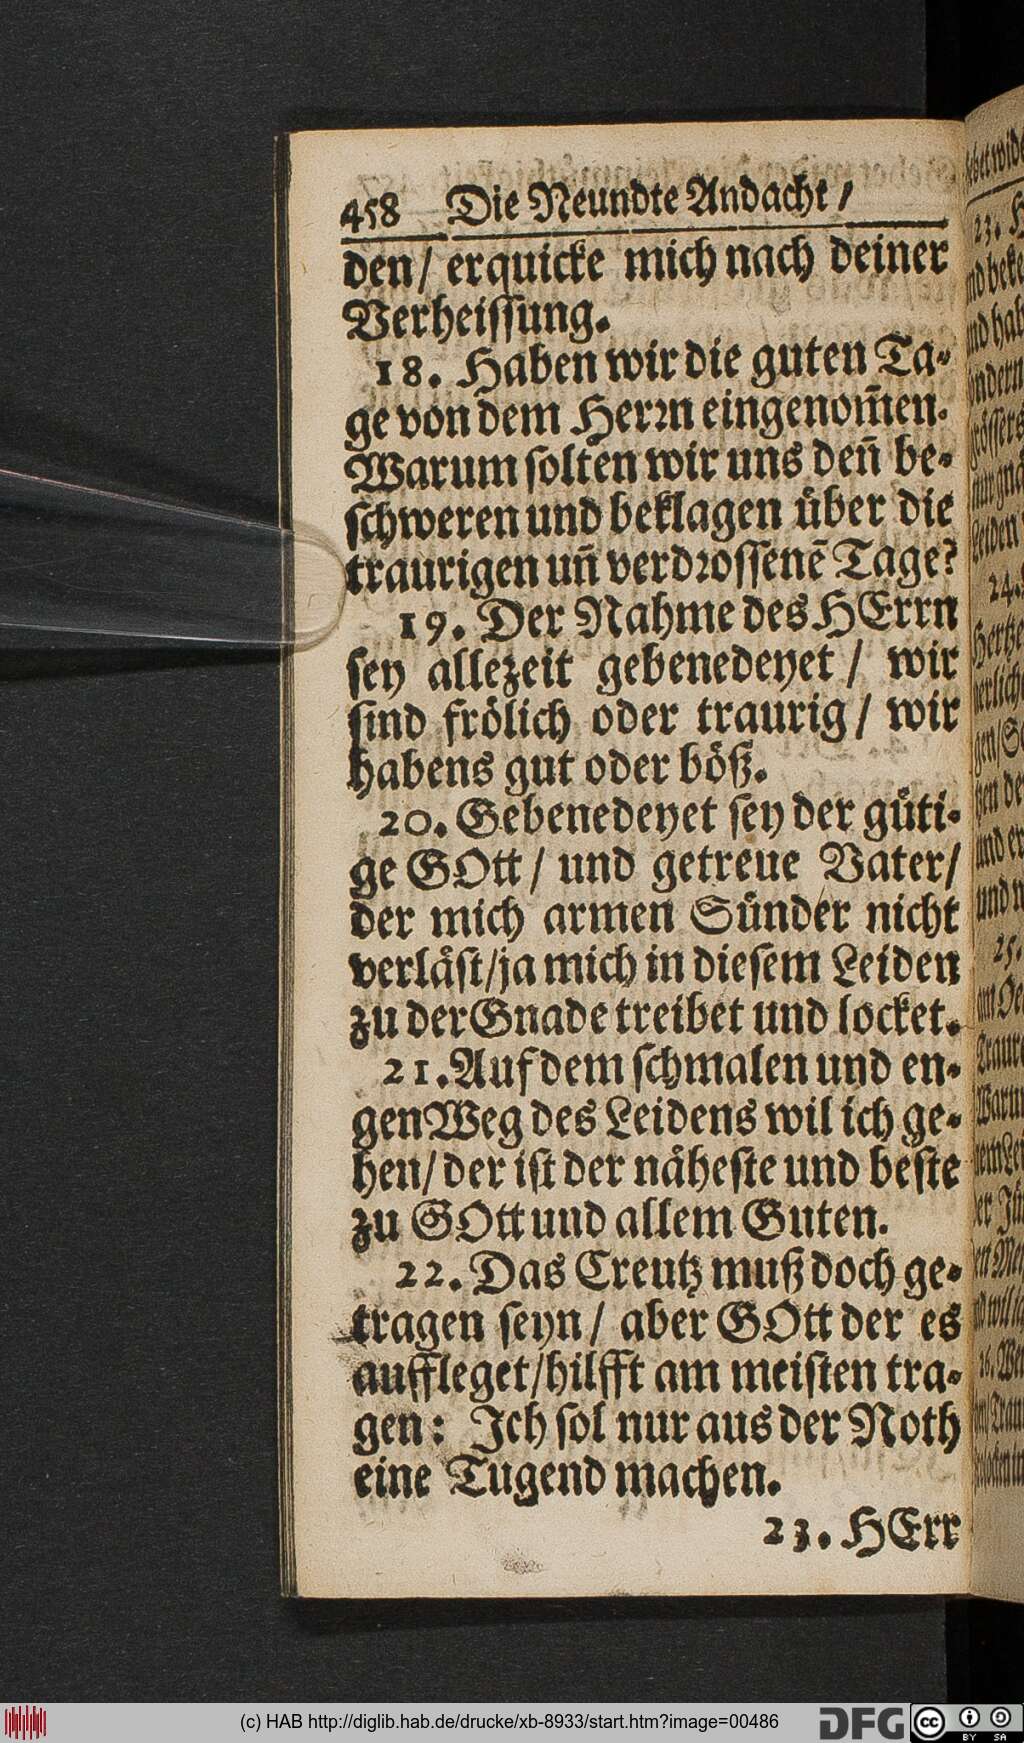 458 Die Neundte Andacht /
den / erquicke mich nach deiner
Verheissung.
18. Haben wir die guten Ta-
ge von dem Herrn eingenom̃en.
Warum solten wir uns deñ be-
schweren und beklagen über die
traurigen uñ verdrossenẽ Tage?
19. Der Nahme des HErrn
sey allezeit gebenedeyet / wir
sind frölich oder traurig / wir
habens gut oder böß.
20. Gebenedeyet sey der güti-
ge GOtt / und getreue Vater /
der mich armen Sünder nicht
verläst / ja mich in diesem Leiden
zu der Gnade treibet und locket.
21. Auf dem schmalen und en-
gen Weg des Leidens wil ich ge-
hen / der ist der näheste und beste
zu GOtt und allem Guten.
22. Das Creutz muß doch ge-
tragen seyn / aber GOtt der es
auffleget / hilfft am meisten tra-
gen: Ich sol nur aus der Noth
eine Tugend machen.
23. HErr
(c) HAB http://diglib.hab.de/drucke/xb-8933/start.htm?image=00486
DFG
cc BY SA